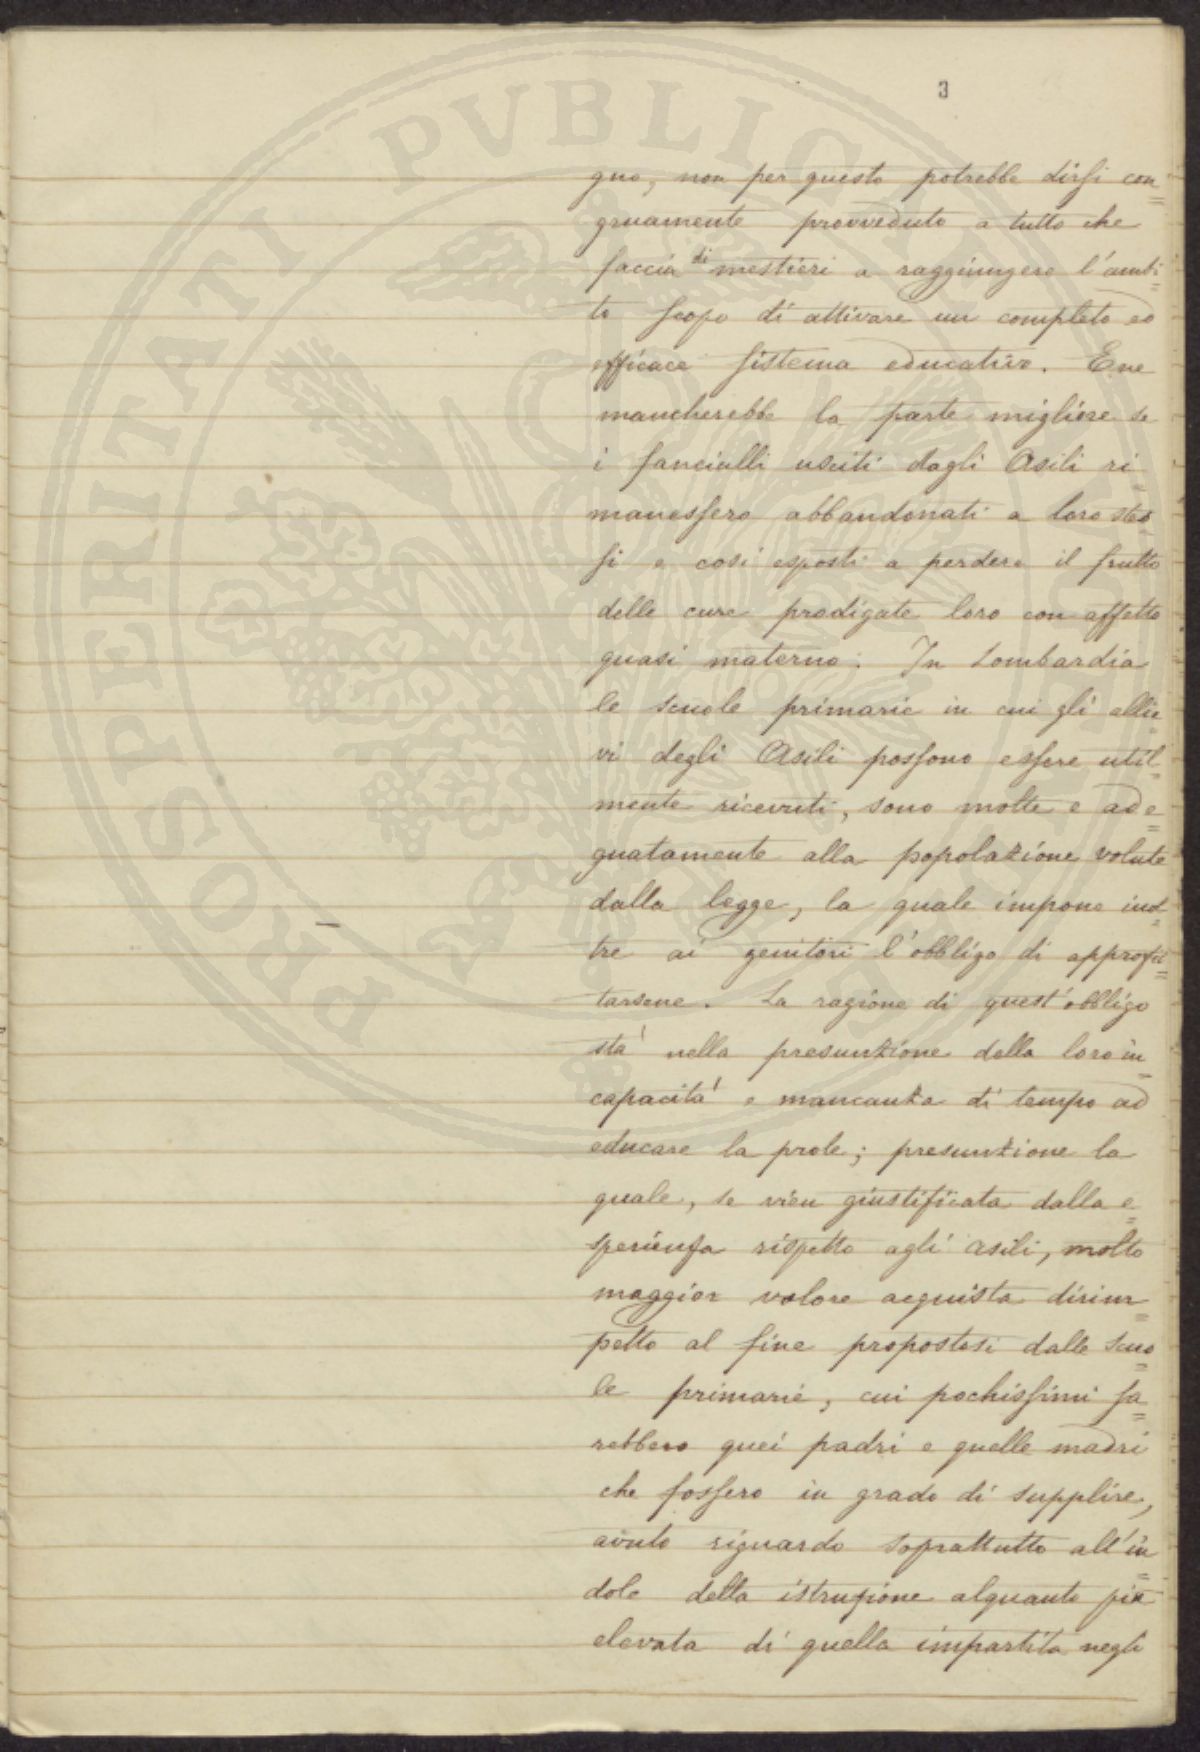 PROSPERITATI PVBLICAE
3
gno, non per questo potrebbe dirsi con=
gruamente provveduto a tutto che
faccia di mestieri a raggiungere l'ambi=
to scopo di attivare un completo ed
efficace sistema educativo. E ne
mancherebbe la parte migliore se
i fanciulli usciti dagli Asili ri=
manessero abbandonati a loro stes=
si e così esposti a perdere il frutto
delle cure prodigate loro con affetto
quasi materno. In Lombardia
le scuole primarie in cui gli allie
vi degli Asili possono essere util=
mente ricevuti, sono molte e ade=
guatamente alla popolazione volute
dalla legge, la quale impone inol=
tre ai genitori l'obbligo di approfit=
tarsene. La ragione di quest'obbligo
stà nella presunzione della loro in=
capacità e mancanza di tempo ad
educare la prole; presunzione la
quale, se vien giustificata dalla e=
sperienza rispetto agli asili, molto
maggior valore acquista dirim=
petto al fine propostosi dalle scuo=
le primarie, cui pochissimi sa=
rebbero quei padri e quelle madri
che fossero in grado di supplire,
avuto riguardo soprattutto all'in=
dole della istruzione alquanto più
elevata di quella impartita negli